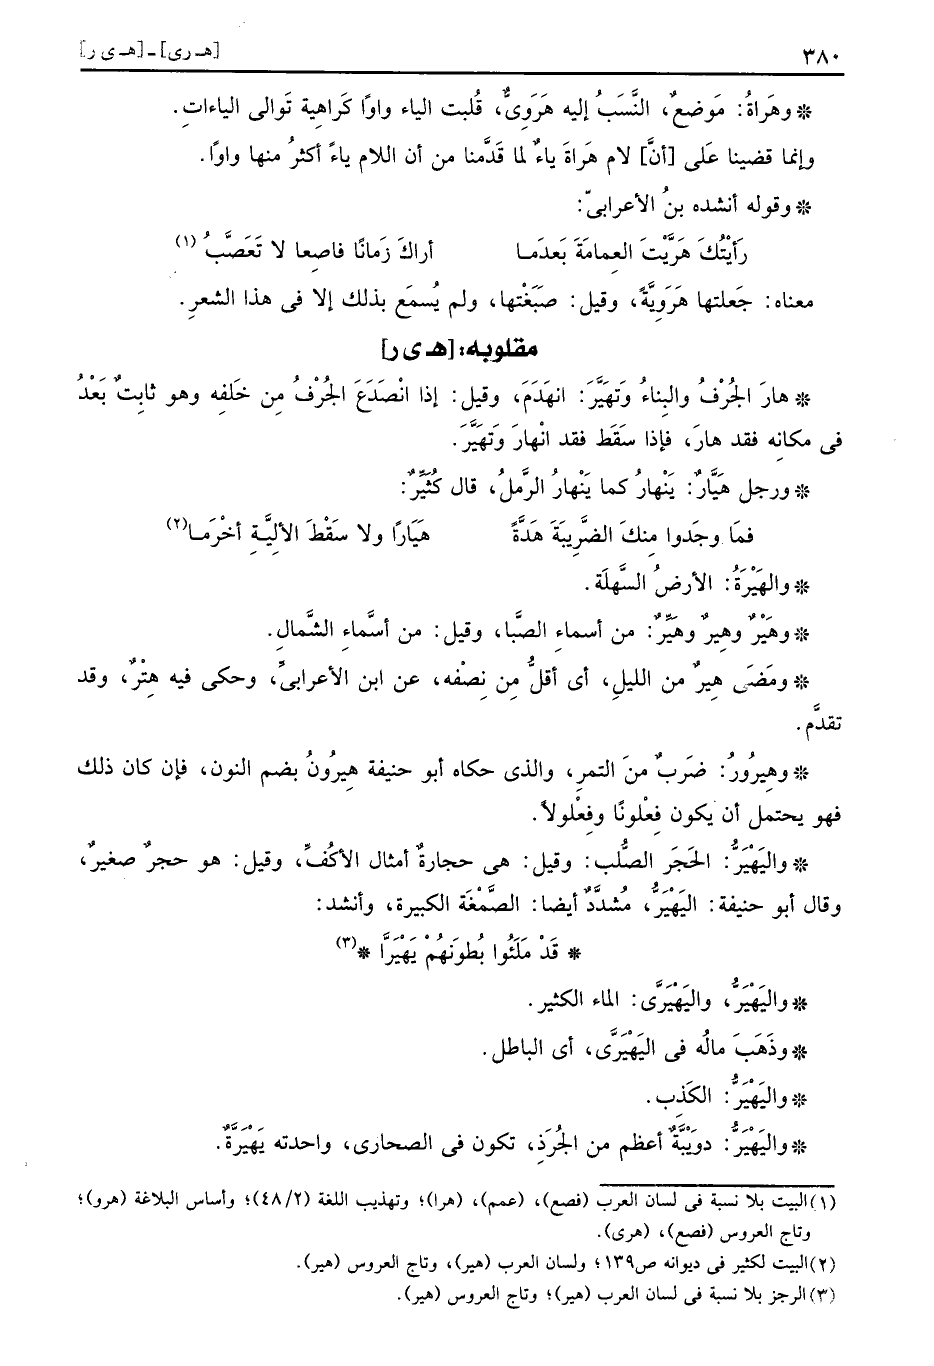 ٣٨٠ [هـ رى] ـ [هـ ى ر]
* وهَراةُ: مَوضعٌ، النَّسَبُ إليه هَرَوِىٌّ، قُلبت الياء واوًا كَراهية تَوالى الياءاتِ.
وإنما قضينا عَلى [أنَّ] لام هَراةَ ياءٌ لما قَدَّمنا من أن اللام ياءً أكثرُ منها واوًا.
* وقوله أنشده بنُ الأعرابىّ:
رَأيْتُكَ هَرَّيْتَ العِمامَةَ بَعدَمـا أراكَ زَمانًا فاصِعا لا تَعَصَّبُ (١)
معناه: جَعلتها هَرَوِيَّةً، وقيل: صَبَغْتها، ولم يُسمَع بذلك إلا فى هذا الشعرِ.
مقلوبه: [هـ ى ر]
* هارَ الجُرْفُ والبناءُ وَتَهَيَّرَ: انهَدَمَ، وقيل: إذا انْصَدَعَ الجُرْفُ مِن خَلفِه وهو ثابتٌ بَعْدُ
فى مكانِه فقد هارَ، فإذا سقَط فقد انْهارَ وَتَهَيَّرَ.
* ورجل هَيَّارٌ: يَنْهارُ كما يَنْهارُ الرَّملُ، قال كُثَيِّرٌ:
فمَا وجَدوا مِنكَ الضَّرِيبَةَ هَدَّةً هَيَارًا ولا سَقْطَ الألِيَّـةِ أخْرَمـا(٢)
* والهَيْرَةُ: الأرضُ السَّهلَة.
* وهَيْرٌ وهِيرٌ وهَيِّرٌ: من أسماءِ الصَّبا، وقيل: من أسَّماءِ الشَّمالِ.
* ومَضَى هِيرٌ من الليلِ، أى أقلُّ مِن نِصْفه، عن ابن الأعرابىِّ، وحكى فيه هِتْرٌ، وقد
تقدَّم.
* وهِيرُورُ: ضَربٌ منَ التمرِ، والذى حكاه أبو حنيفة هِيرُونُ بضم النون، فإن كان ذلك
فهو يحتمل أن يكون فِعْلونًا وفِعْلولاً.
* واليَهْيَرُّ: الحَجَر الصُّلب: وقيل: هى حجارةٌ أمثال الأكُفِّ، وقيل: هو حجرٌ صغيرٌ،
وقال أبو حنيفة: اليَهْيَرُّ، مُشدَّدٌ أيضا: الصَّمْغَة الكبيرة، وأنشد:
* قَدْ مَلَئُوا بُطونَهُمْ يَهْيَرَّا *(٣)
* واليَهْيَرُّ، واليَهْيَرَّى: الماء الكثير.
* وذَهَبَ مالُه فى اليَهْيَرَّى، أى الباطل.
* واليَهْيَرُّ: الكَذِب.
* واليَهْيَرُّ: دوَيْبَّةٌ أعظم من الجُرَذِ، تكون فى الصحارى، واحدته يَهْيَرَّةٌ.
(١) البيت بلا نسبة فى لسان العرب (فصع)، (عمم)، (هرا)؛ وتهذيب اللغة (٤٨/٢)؛ وأساس البلاغة (هرو)؛
وتاج العروس (فصع)، (هرى).
(٢) البيت لكثير فى ديوانه ص١٣٩؛ ولسان العرب (هير)، وتاج العروس (هير).
(٣) الرجز بلا نسبة فى لسان العرب (هير)؛ وتاج العروس (هير).